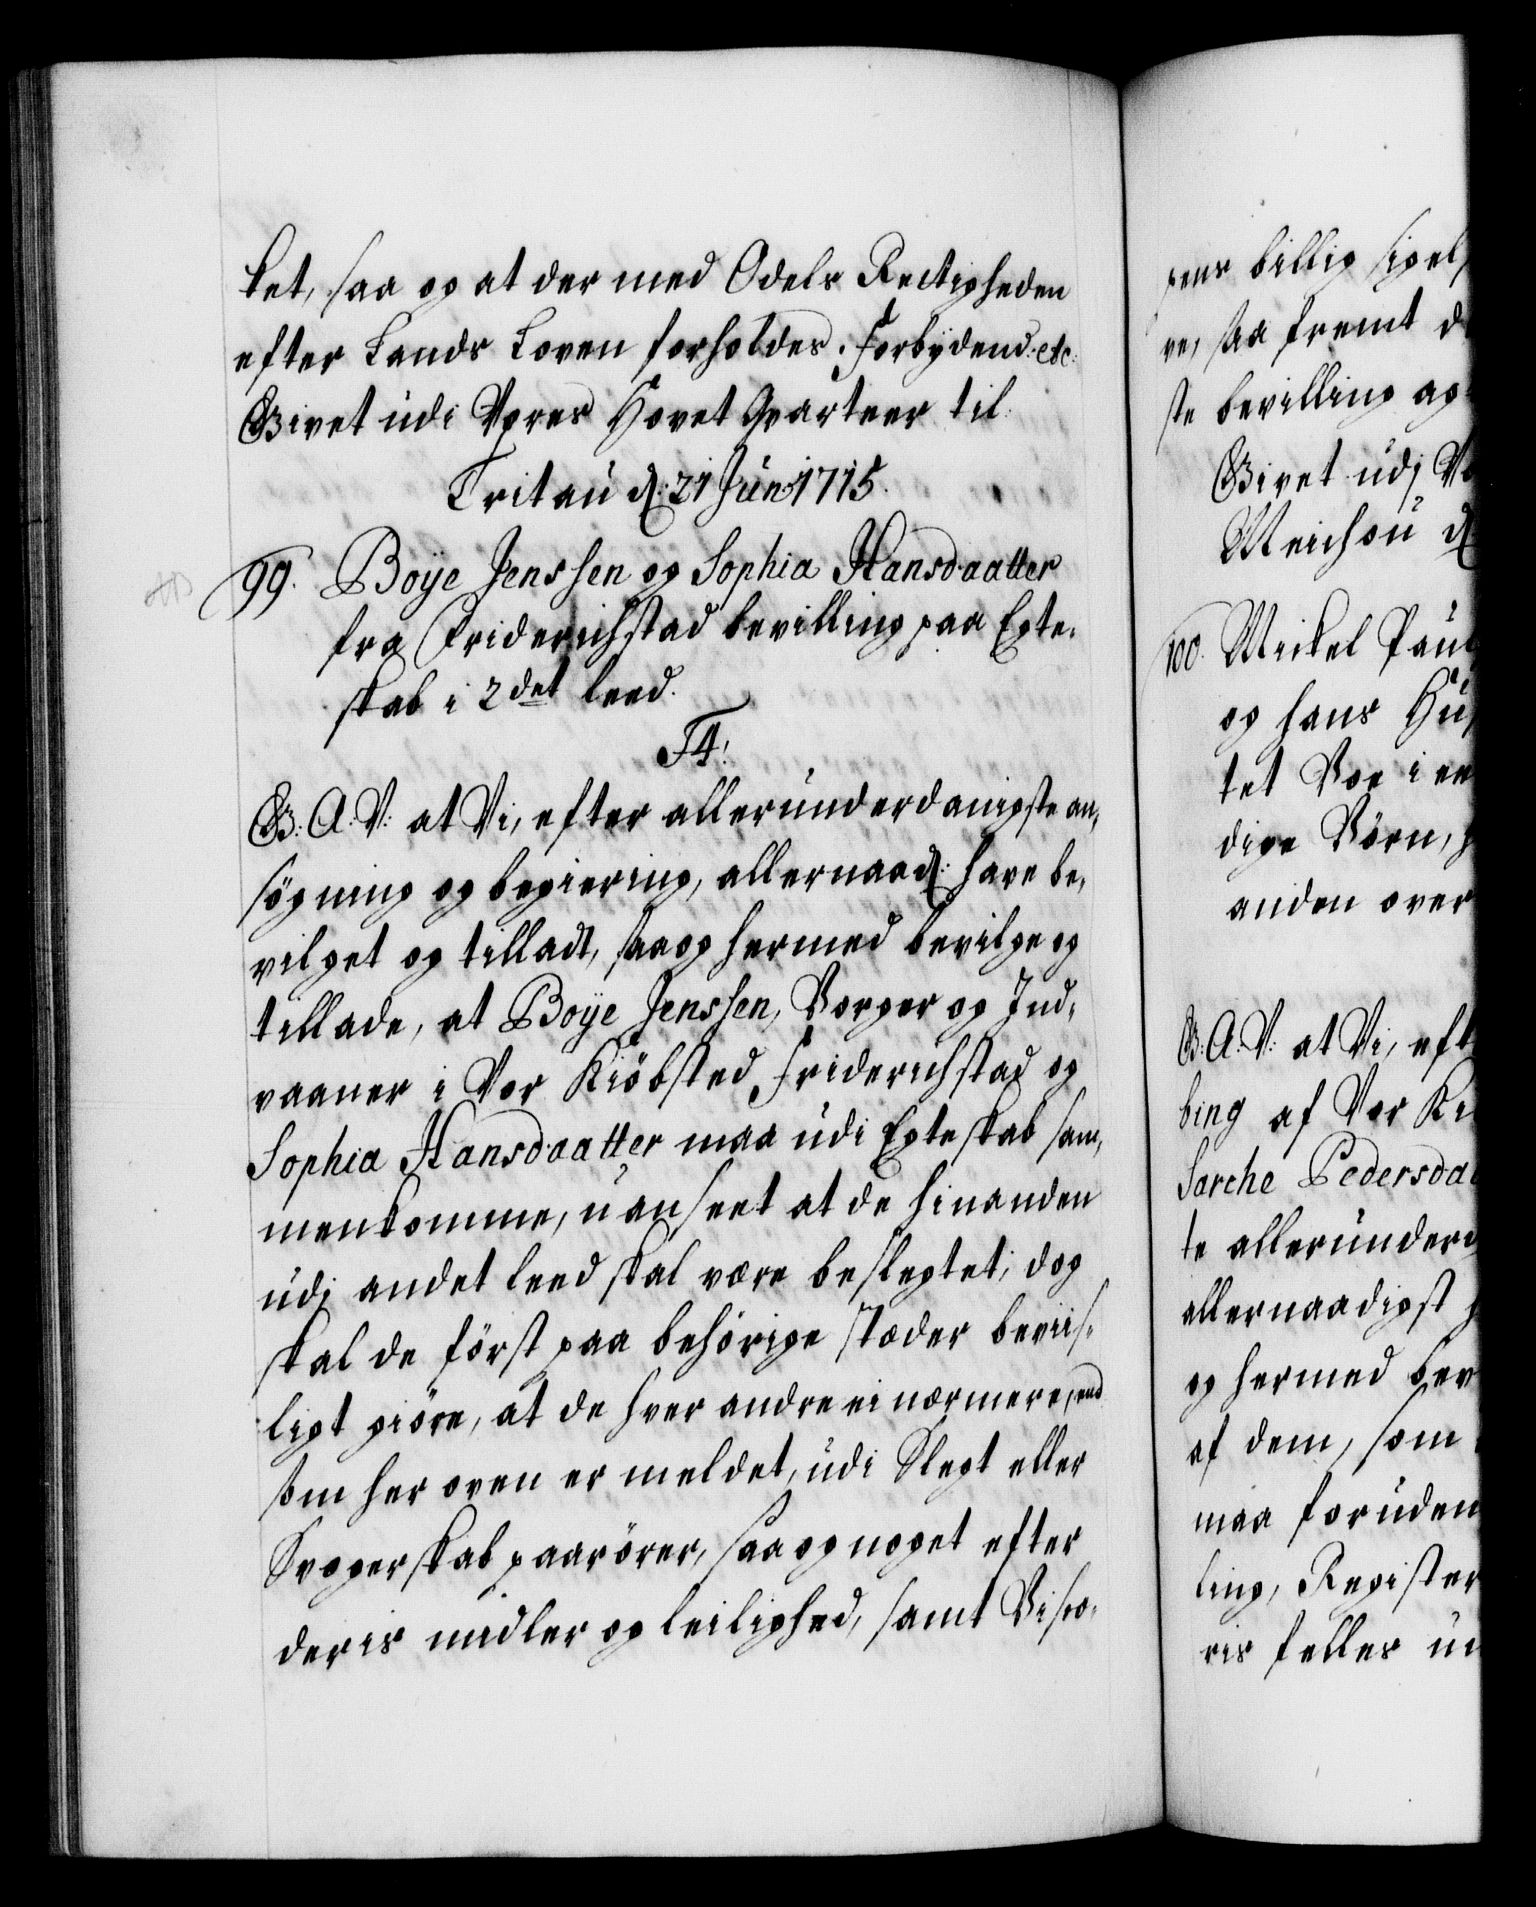 ket, saa og at der med Odels Rectigheden
efter Lands Loven forholdes. Forbydend. etc:
Givet udi Vores Hovet Qvarteer til
Tritau d: 21 Jun: 1715.
99. Boÿe Jenssen og Sophia Hansdaatter
fra Friderichstad bevilling paa Egte-
skab i 2det leed.
F4!
G: A: V: at Vi, efter allerunderdanigste an-
søgning og begiering, allernaad: have be-
vilget og tilladt, saa og hermed bevilge og
tillade, at Boÿe Jenssen, Borger og Ind-
vaaner i Vor Kiöbsted Friderichstad og
Sophia Hansdaatter maa udi Egteskab sam-
menkomme, uanseet at de hinanden
udj andet leed skal være beslegtet; dog
skal de först paa behörige stæder beviis-
ligt giöre, at de hver andre ei nærmere, end
som her oven er meldet, udi Slegt eller
Svogerskab paarörer, saa og noget efter
deris midler og leilighed, samt Visto-
gens billig sigel
ve, saa fremt d
ste bevilling ag
Givet udj Vo
Meichou d
100. Mickel Paul
og hans Hus
tet Voe i en
dige Börn, h
anden over
G: A: V: at Vi, eft
bing af Vor Ki
Sarche Pedersda
te allerunderd
allernaadigst h
og hermed bev
af dem, som
maa foruden
ling, Register
ris felles ui